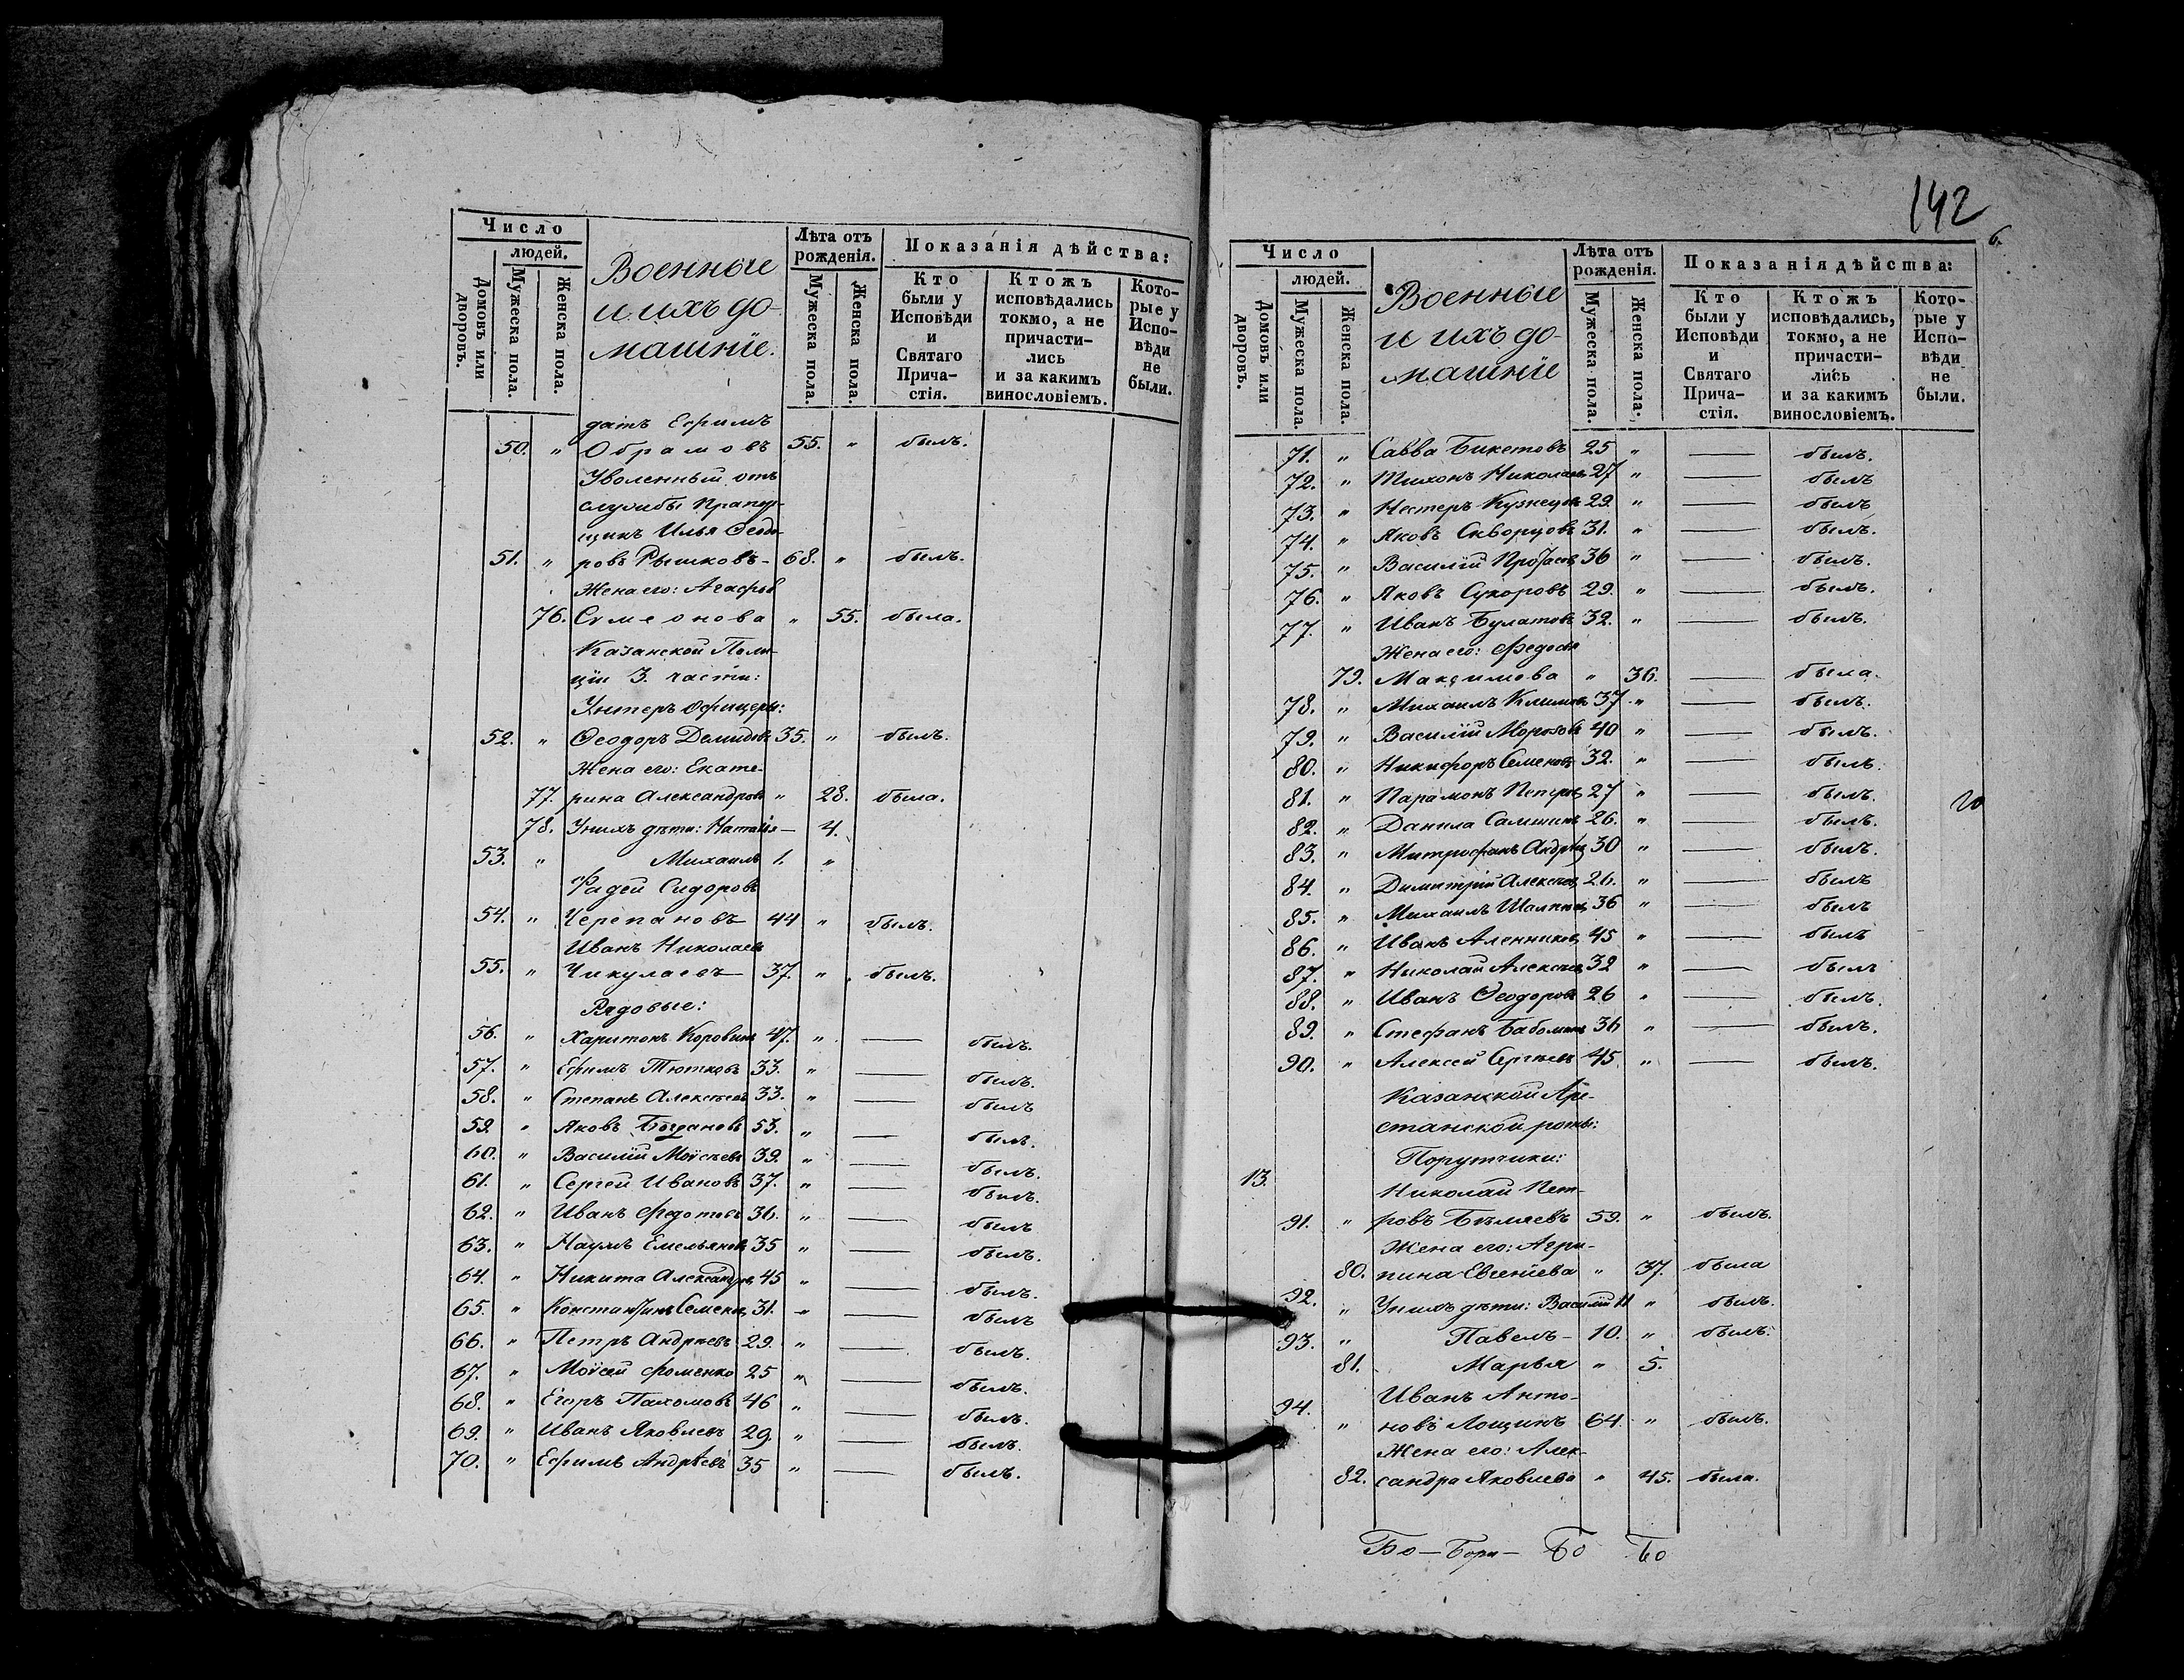 Число
людей.
Домовъ или дворовъ.
Мужеска пола.
Женска пола.
Военные
и ихъ до-
машніе.
Лѣта отъ рожденія.
Мужеска пола.
Женска пола.
Показанія дѣйства:
Кто были у Исповѣди и Святаго Прича- стія.
Ктожъ исповѣдались токмо, а не причасти- лись и за какимъ винословіемъ.
Кото- рые у Испо- вѣди не были.
датъ Ефимъ
50. " Обрамовъ 55. " былъ.
Уволенный отъ
службы Прапор-
щикъ Илья Ѳеодо-
51. " ровъ Рышковъ - 68. " былъ.
Жена его: Агафья
76. Сумеонова " 55. была.
Казанской Поли-
ціи 3. части:
Унтеръ офицеры:
52. " Ѳеодоръ Демидовъ 35. " былъ.
Жена его: Екате-
77. рина Александрова " 28. была.
78. У нихъ дѣти: Наталія — 4.
53. " Михаилъ 1. "
Фадей Сидоровъ
54. " Черепановъ 44 " былъ.
Иванъ Николаевъ
55. " Чикулаевъ 37. " былъ.
Рядовые:
56. " Харитонъ Коровинъ 47. " — былъ.
57. " Ефимъ Тютковъ 33. " — былъ.
58. " Степанъ Алексѣевъ 33. " — былъ
59. " Яковъ Богдановъ 53. " — былъ.
60. " Василій Моѵсѣевъ 39. " — былъ.
61. " Сергей Ивановъ 37. " — былъ.
62. " Иванъ Федотовъ 36. " — былъ
63. " Наумъ Емельяновъ 35 " — былъ.
64. " Никита Александровъ 45 " — былъ.
65. " Константинъ Семеновъ 31. " — былъ
66. " Петръ Андреевъ 29. " — былъ.
67. " Моѵсей Фоменко 25 " — былъ.
68. " Егоръ Пахомовъ 46 " — былъ.
69. " Иванъ Яковлевъ 29. " — былъ.
70. " Ефимъ Андрѣевъ 35 " — былъ.
142
6.
Число
людей.
Домовъ или дворовъ.
Мужеска пола.
Женска пола.
Военные
и ихъ до-
машніе
Лѣта отъ рожденія.
Мужеска пола.
Женска пола.
Показанія дѣйства:
Кто были у Исповѣди и Святаго Прича- стія.
Ктожъ исповѣдались, токмо, а не причасти- лись и за какимъ винословіемъ.
Кото- рые у Испо- вѣди не были.
71. " Савва Бикетовъ 25 " — былъ.
72. " Тихонъ Николаевъ 27 " — былъ
73. " Нестеръ Кузнецовъ 29. " — былъ
74. " Яковъ Скворцовъ 31. " — былъ.
75. " Василій Протасовъ 36 " — былъ.
76. " Яковъ Сухоровъ 29. " — былъ.
77. " Иванъ Булатовъ 32. " — былъ.
Жена его: Федосья
79. Максимова " 36. — была.
78. " Михаилъ Климовъ 37. " — былъ.
79. " Василій Морозовъ 40 " — былъ.
80. " Никифоръ Семеновъ 32. " — былъ.
81. " Парамонъ Петровъ 27 " — былъ.
82. " Данила Самшинъ 26. " — былъ.
83. " Митрофанъ Андрѣевъ 30 " — былъ.
84. " Димитрій Алексѣевъ 26. " — былъ
85. " Михаилъ 36 " — былъ
86. " Иванъ Аленниковъ 45 " — былъ
87. " Николай Алексѣевъ 32 " — былъ
88. " Иванъ Ѳеодоровъ 26 " — былъ.
89. " Стефанъ 36 " — былъ.
90. " Алексей Сергѣевъ 45 " — былъ.
Казанской Аре-
станской роты:
Порутчики:
13. Николай Пет-
91. " ровъ Бѣляевъ 59. " былъ.
Жена его: Агри-
80. пина Евгеніева " 37. была
92. " У нихъ дѣти: Василій 11 " былъ.
93. " Павелъ - 10. " былъ.
81. Марья " 5.
Иванъ Анто-
94. " новъ Лощинъ 64. " былъ.
Жена его: Алек-
82. сандра Яковлева " 45. была.